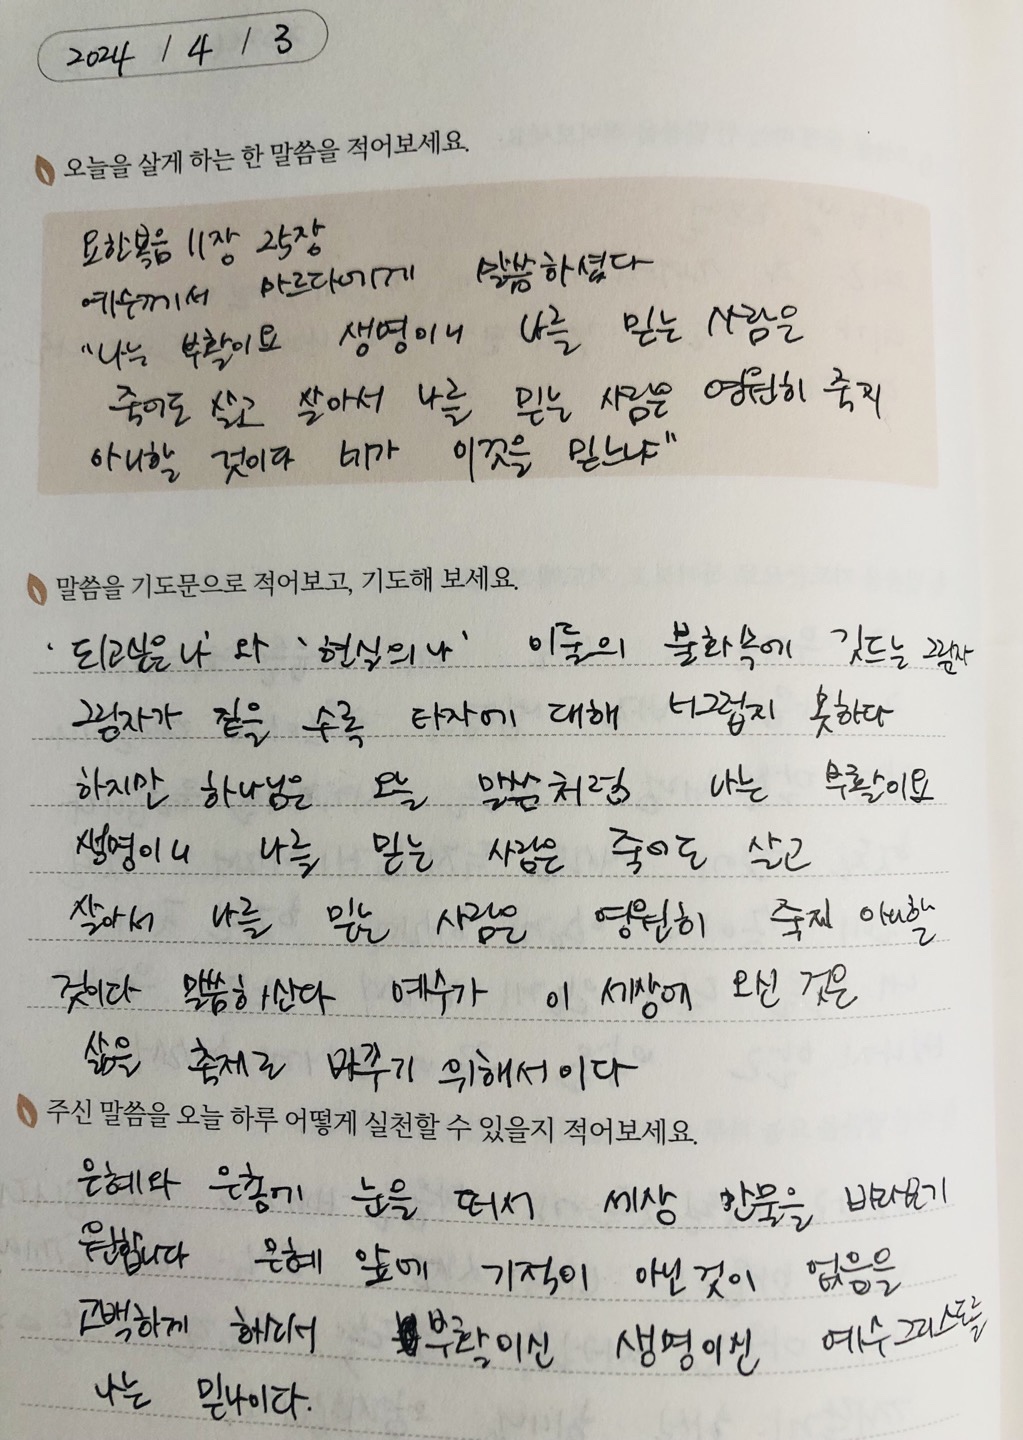 2024 / 4 / 3
오늘을 살게 하는 한 말씀을 적어보세요.
요한복음 11장 25장
예수께서 마르다에게 말씀하셨다
"나는 부활이요 생명이니 나를 믿는 사람은
죽어도 살고 살아서 나를 믿는 사람은 영원히 죽지
아니할 것이다 네가 이것을 믿느냐"
말씀을 기도문으로 적어보고, 기도해 보세요.
'되고싶은 나' 와 '현실의 나' 이들의 불화속에 깃드는 그림자
그림자가 짙을 수록 타자에 대해 너그럽지 못하다
하지만 하나님은 오늘 말씀처럼 나는 부활이요
생명이니 나를 믿는 사람은 죽어도 살고
살아서 나를 믿는 사람은 영원히 죽지 아니할
것이다 말씀하신다 예수가 이 세상에 오신 것은
삶을 축제로 바꾸기 위해서이다
주신 말씀을 오늘 하루 어떻게 실천할 수 있을지 적어보세요.
은혜와 은총에 눈을 떠서 세상 만물을 바라보기
원합니다 은혜 앞에 기적이 아닌것이 없음을
고백하게 하셔서 부활이신 생명이신 예수그리스도를
나는 믿나이다.